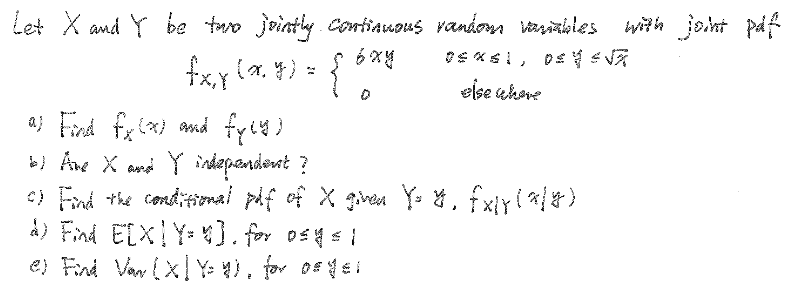 Let X and Y be two jointly continuous random variables with joint pdf
f_{X,Y}(x, y) = { 6xy 0≤x≤1, 0≤y≤√x
0 elsewhere
a) Find f_X(x) and f_Y(y)
b) Are X and Y independent?
c) Find the conditional pdf of X given Y=y, f_{X|Y}(x|y)
d) Find E[X|Y=y], for 0≤y≤1
e) Find Var(X|Y=y), for 0≤y≤1